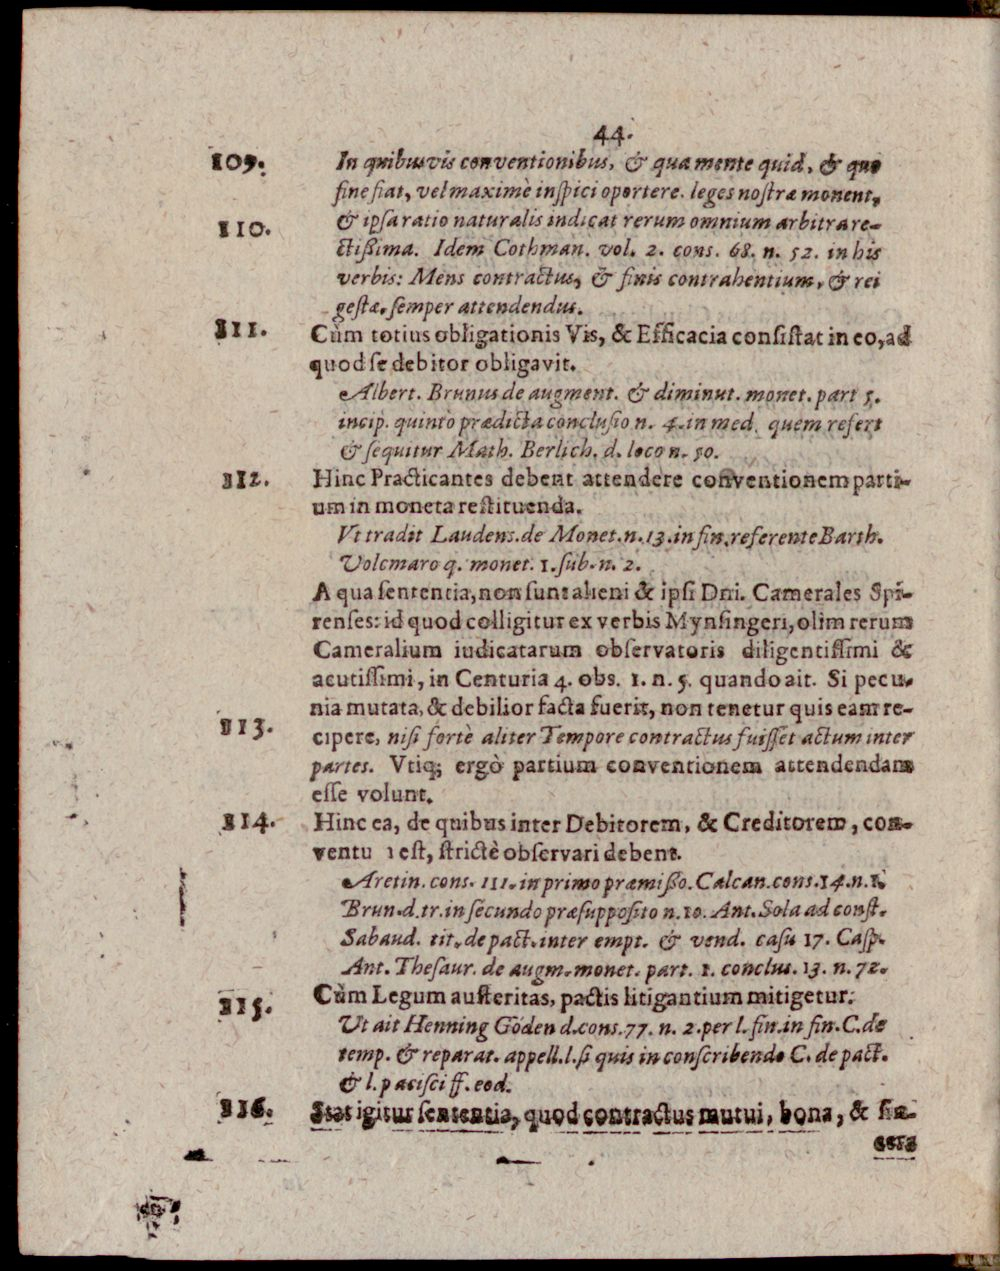 44.
109. In quibusvis conventionibus, & qua mente quid, & quo
fine fiat, vel maximè inſpici oportere. leges noſtræ monent,
110. & ipſa ratio naturalis indicat rerum omnium arbitra re-
ctißima. Idem Cothman. vol. 2. conſ. 68. n. 52. in his
verbis: Mens contractus, & finis contrahentium, & rei
geſtæ, ſemper attendendus.
111. Cùm totius obligationis Vis, & Efficacia conſiſtat in eo, ad
quod ſe debitor obligavit.
Albert. Brunus de augment. & diminut. monet. part 5.
incip. quintò prædicta concluſio n. 4. in med. quem refert
& ſequitur Math. Berlich. d. loco n. 50.
112. Hinc Practicantes debent attendere conventionem parti-
um in moneta reſtituenda.
Vt tradit Laudens. de Monet. n. 13. in fin. referente Barth.
Volcmaro q. monet. 1. ſub. n. 2.
A qua ſententia, non ſunt alieni & ipſi Dni. Camerales Spi-
renſes: id quod colligitur ex verbis Mynſingeri, olim rerum
Cameralium iudicatarum obſervatoris diligentiſſimi &
acutiſſimi, in Centuria 4. obſ. 1. n. 5. quando ait. Si pecu-
nia mutata, & debilior facta fuerit, non tenetur quis eam re-
113. cipere, niſi fortè aliter Tempore contractus fuiſſet actum inter
partes. Vtiq; ergò partium conventionem attendendam
eſſe volunt.
114. Hinc ea, de quibus inter Debitorem, & Creditorem, con-
ventu 1 eſt, ſtrictè obſervari debent.
Aretin. conſ. 111. in primo præmißo. Calcan. conſ. 14. n. 1.
Brun. d. tr. in ſecundo præſuppoſito n. 10. Ant. Sola ad conſt.
Sabaud. tit. de pact. inter empt. & vend. caſu 17. Caſp.
Ant. Theſaur. de augm. monet. part. 1. concluſ. 13. n. 72.
115. Cùm Legum auſteritas, pactis litigantium mitigetur.
Ut ait Henning Göden d. conſ. 77. n. 2. per l. fin. in fin. C. de
temp. & reparat. appell. l. ſi quis in conſcribendo C. de pact.
& l. pacisci ff. eod.
116. Stat igitur ſententia, quod contractus mutui, bona, & ſin-
cera